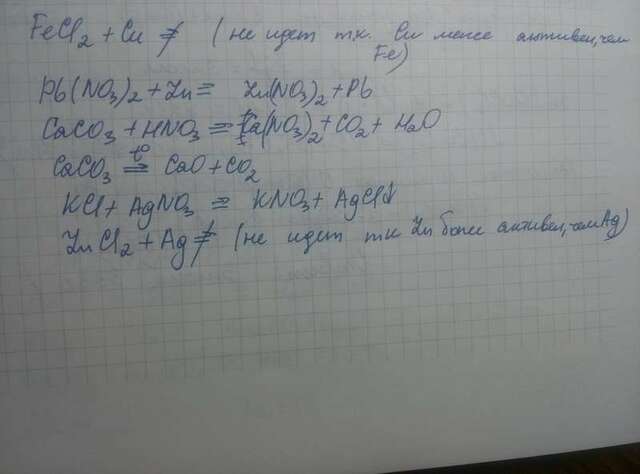 FeCl₂ + Cu ≠ (не идет т.к. Cu менее активен, чем
Fe)
Pb(NO₃)₂ + Zn = Zn(NO₃)₂ + Pb
CaCO₃ + HNO₃ = Ca(NO₃)₂ + CO₂ + H₂O
CaCO₃ t° = CaO + CO₂
KCl + AgNO₃ = KNO₃ + AgCl↓
ZnCl₂ + Ag ≠ (не идет тк Zn более активен, чем Ag)